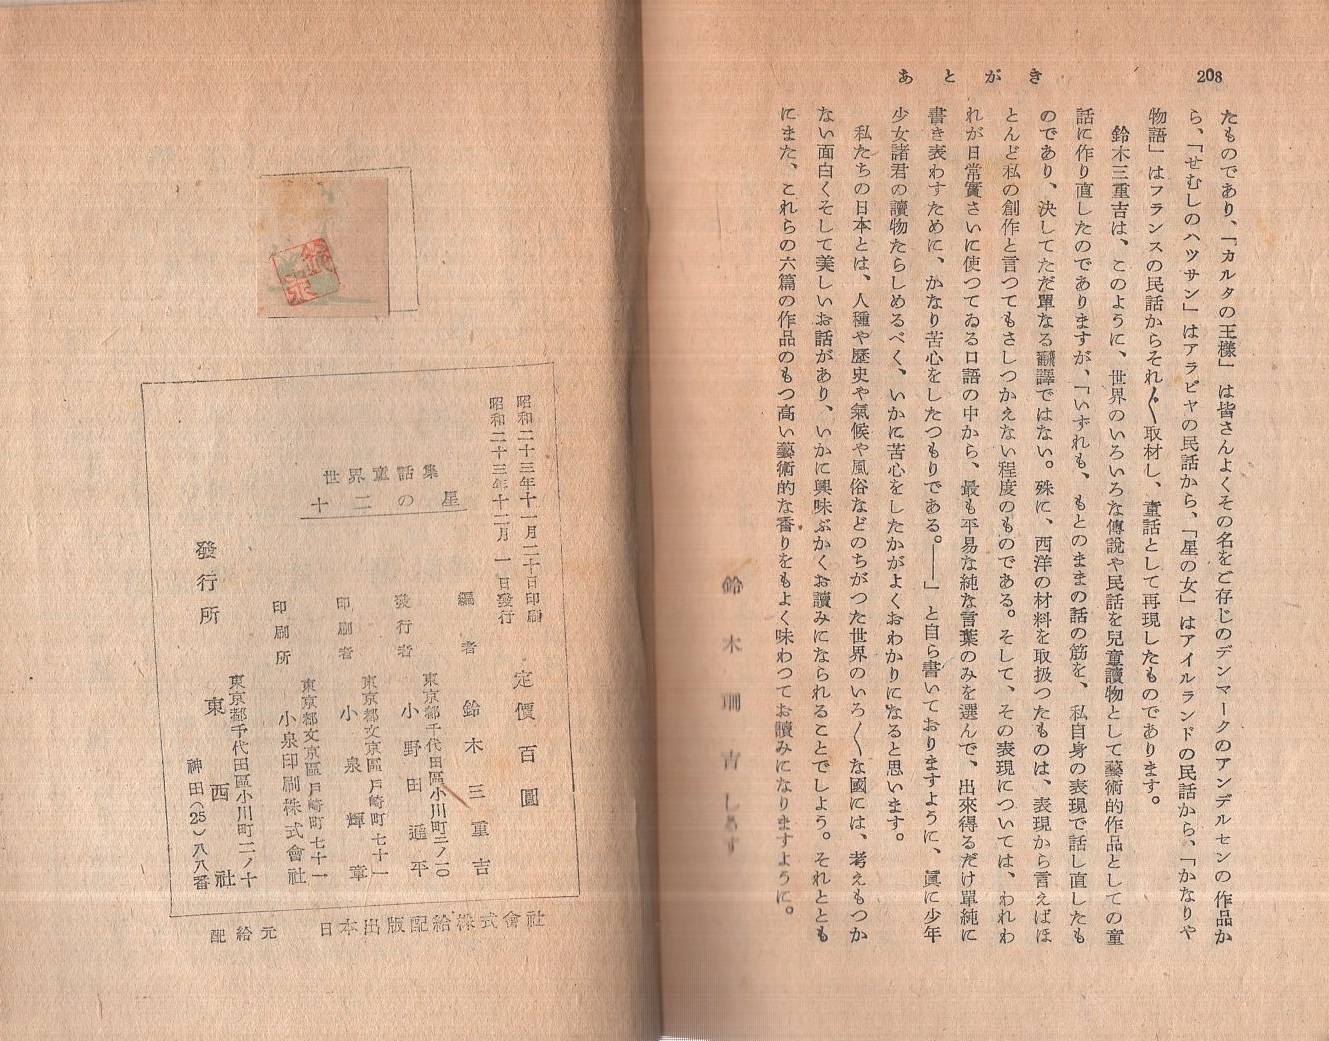 208
あとがき
たものであり、「カルタの王樣」は皆さんよくその名をご存じのデンマークのアンデルセンの作品か
ら、「せむしのハツサン」はアラビヤの民話から、「星の女」はアイルランドの民話から、「かなりや
物語」はフランスの民話からそれ〴〵取材し、童話として再現したものであります。
鈴木三重吉は、このように、世界のいろいろな傳說や民話を兒童讀物として藝術的作品としての童
話に作り直したのでありますが、「いずれも、もとのままの話の筋を、私自身の表現で話し直したも
のであり、決してただ單なる飜譯ではない。殊に、西洋の材料を取扱つたものは、表現から言えばほ
とんど私の創作と言つてもさしつかえない程度のものである。そして、その表現については、われわ
れが日常實さいに使つてゐる口語の中から、最も平易な純な言葉のみを選んで、出來得るだけ單純に
書き表わすために、かなり苦心をしたつもりである。――」と自ら書いておりますように、眞に少年
少女諸君の讀物たらしめるべく、いかに苦心をしたかがよくおわかりになると思います。
私たちの日本とは、人種や歷史や氣候や風俗などのちがつた世界のいろ〳〵な國には、考えもつか
ない面白くそして美しいお話があり、いかに興味ぶかくお讀みになられることでしよう。それととも
にまた、これらの六篇の作品のもつ高い藝術的な香りをもよく味わつてお讀みになりますように。
鈴木珊吉しるす
鈴木
昭和二十三年十一月二十日印刷
昭和二十三年十二月一日發行
定價百圓
世界童話集
十二の星
編者 鈴木三重吉
東京都千代田區小川町二ノ一〇
發行者 小野田通平
東京都文京區戶崎町七十一
印刷者 小泉輝章
東京都文京區戶崎町七十一
印刷所 小泉印刷株式會社
東京都千代田區小川町二ノ十
發行所 東西社
神田(25)八八番
配給元 日本出版配給株式會社